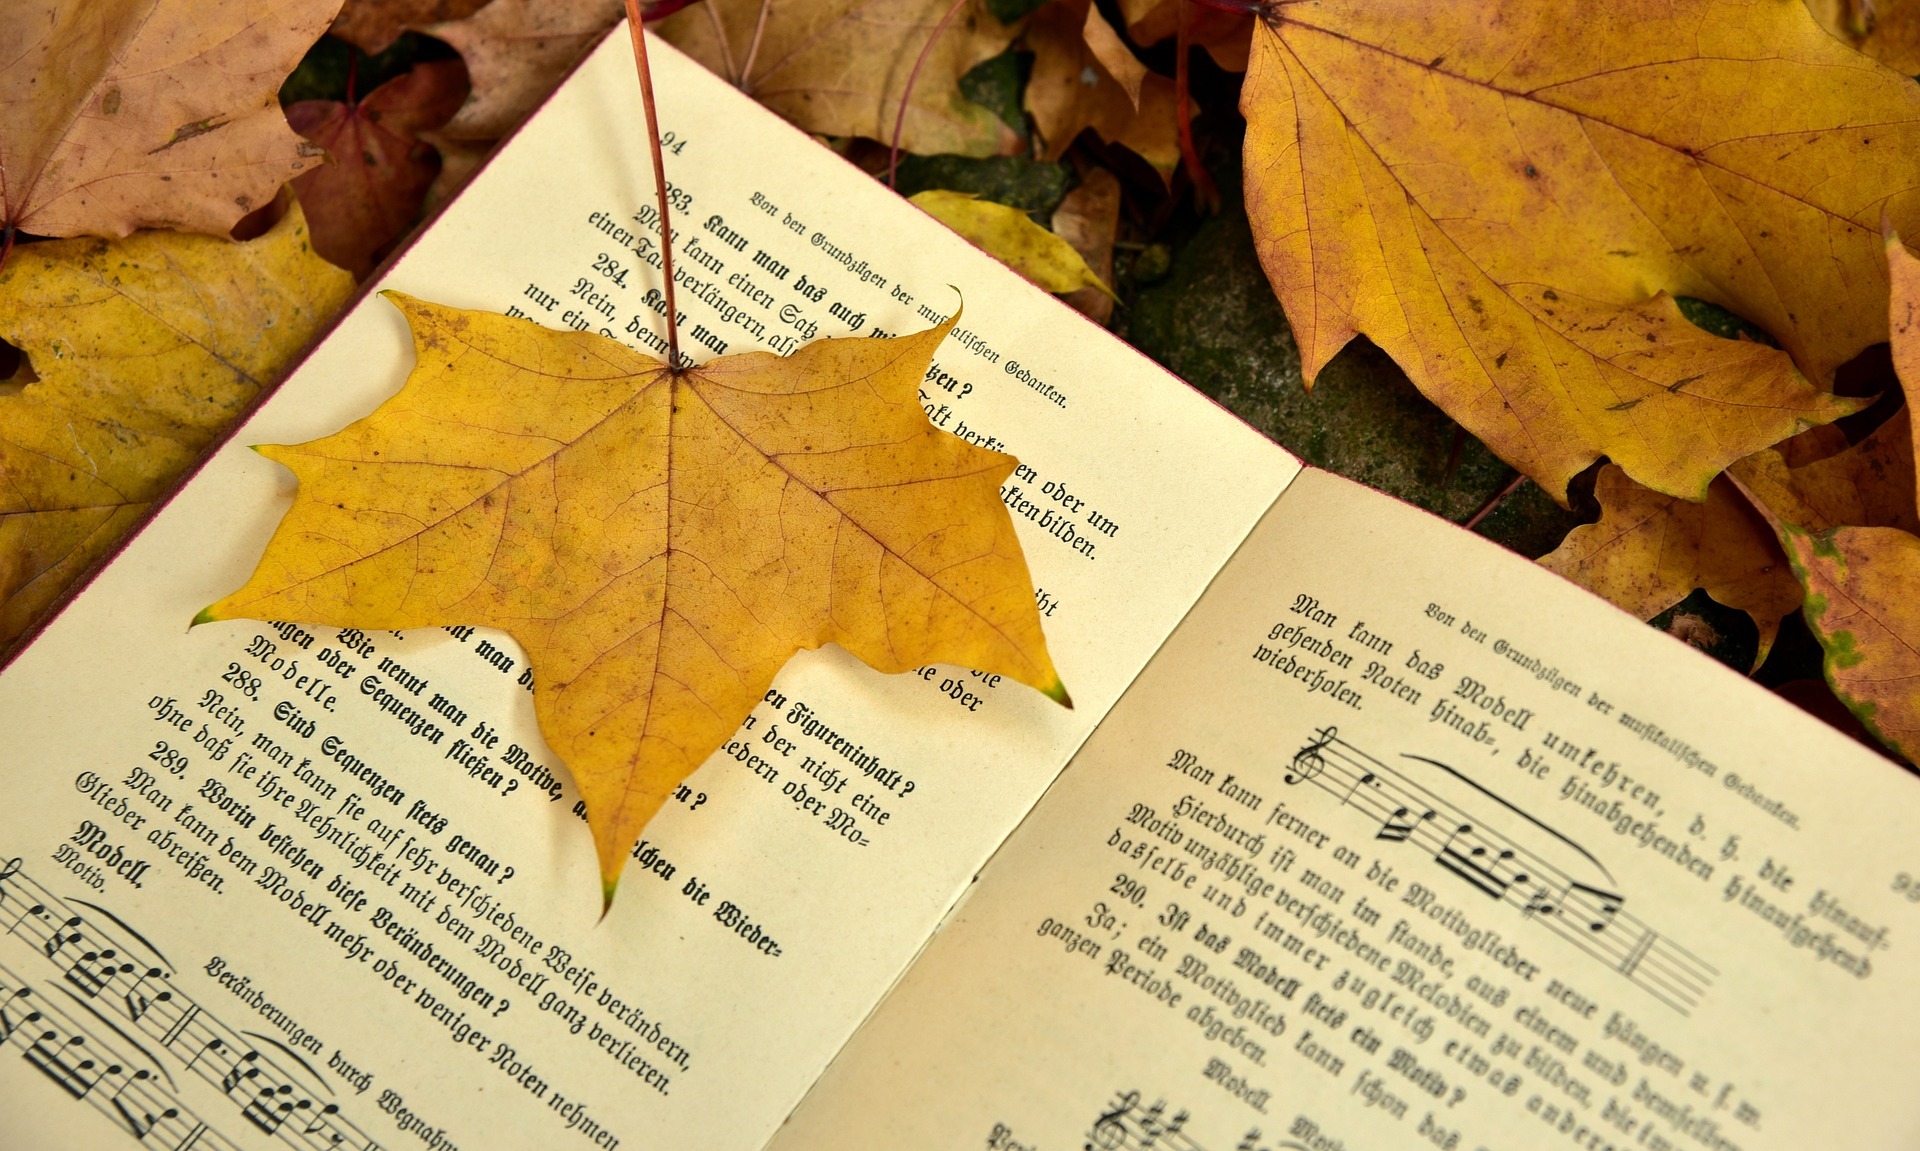 94
Von den Grundzügen der musikalischen Gedanken.
283. Kann man das auch mi tzen?
Man kann einen Satz Takt verkür en oder um
einen Takt verlängern, als akten bilden.
284. Kann man
Nein, denn iht
nur ein
die
ne oder
nt man di en Figureninhalt?
n der nicht eine
iedern oder Mo=
Wie nennt man die Motive, a elchen die Wieder=
ngen oder Sequenzen fließen?
Modelle.
288. Sind Sequenzen stets genau?
Nein, man kann sie auf sehr verschiedene Weise verändern,
ohne daß sie ihre Aehnlichkeit mit dem Modell ganz verlieren.
289. Worin bestehen diese Veränderungen?
Man kann dem Modell mehr oder weniger Noten nehmen
Glieder abreißen.
Modell.
Motiv.
Veränderungen durch Wegnahm
95
Von den Grundzügen der musikalischen Gedanken.
Man kann das Modell umkehren, d. h. die hinauf=
gehenden Noten hinab=, die hinabgehenden hinaufgehend
wiederholen.
Man kann ferner an die Motivglieder neue hängen u. s. w.
Hierdurch ist man im stande, aus einem und demselben
Motiv unzählige verschiedene Melodien zu bilden, die im
dasselbe und immer zugleich etwas andere
290. Ist das Modell stets ein Motiv?
Ja; ein Motivglied kann schon das
ganzen Periode abgeben.
Modell.